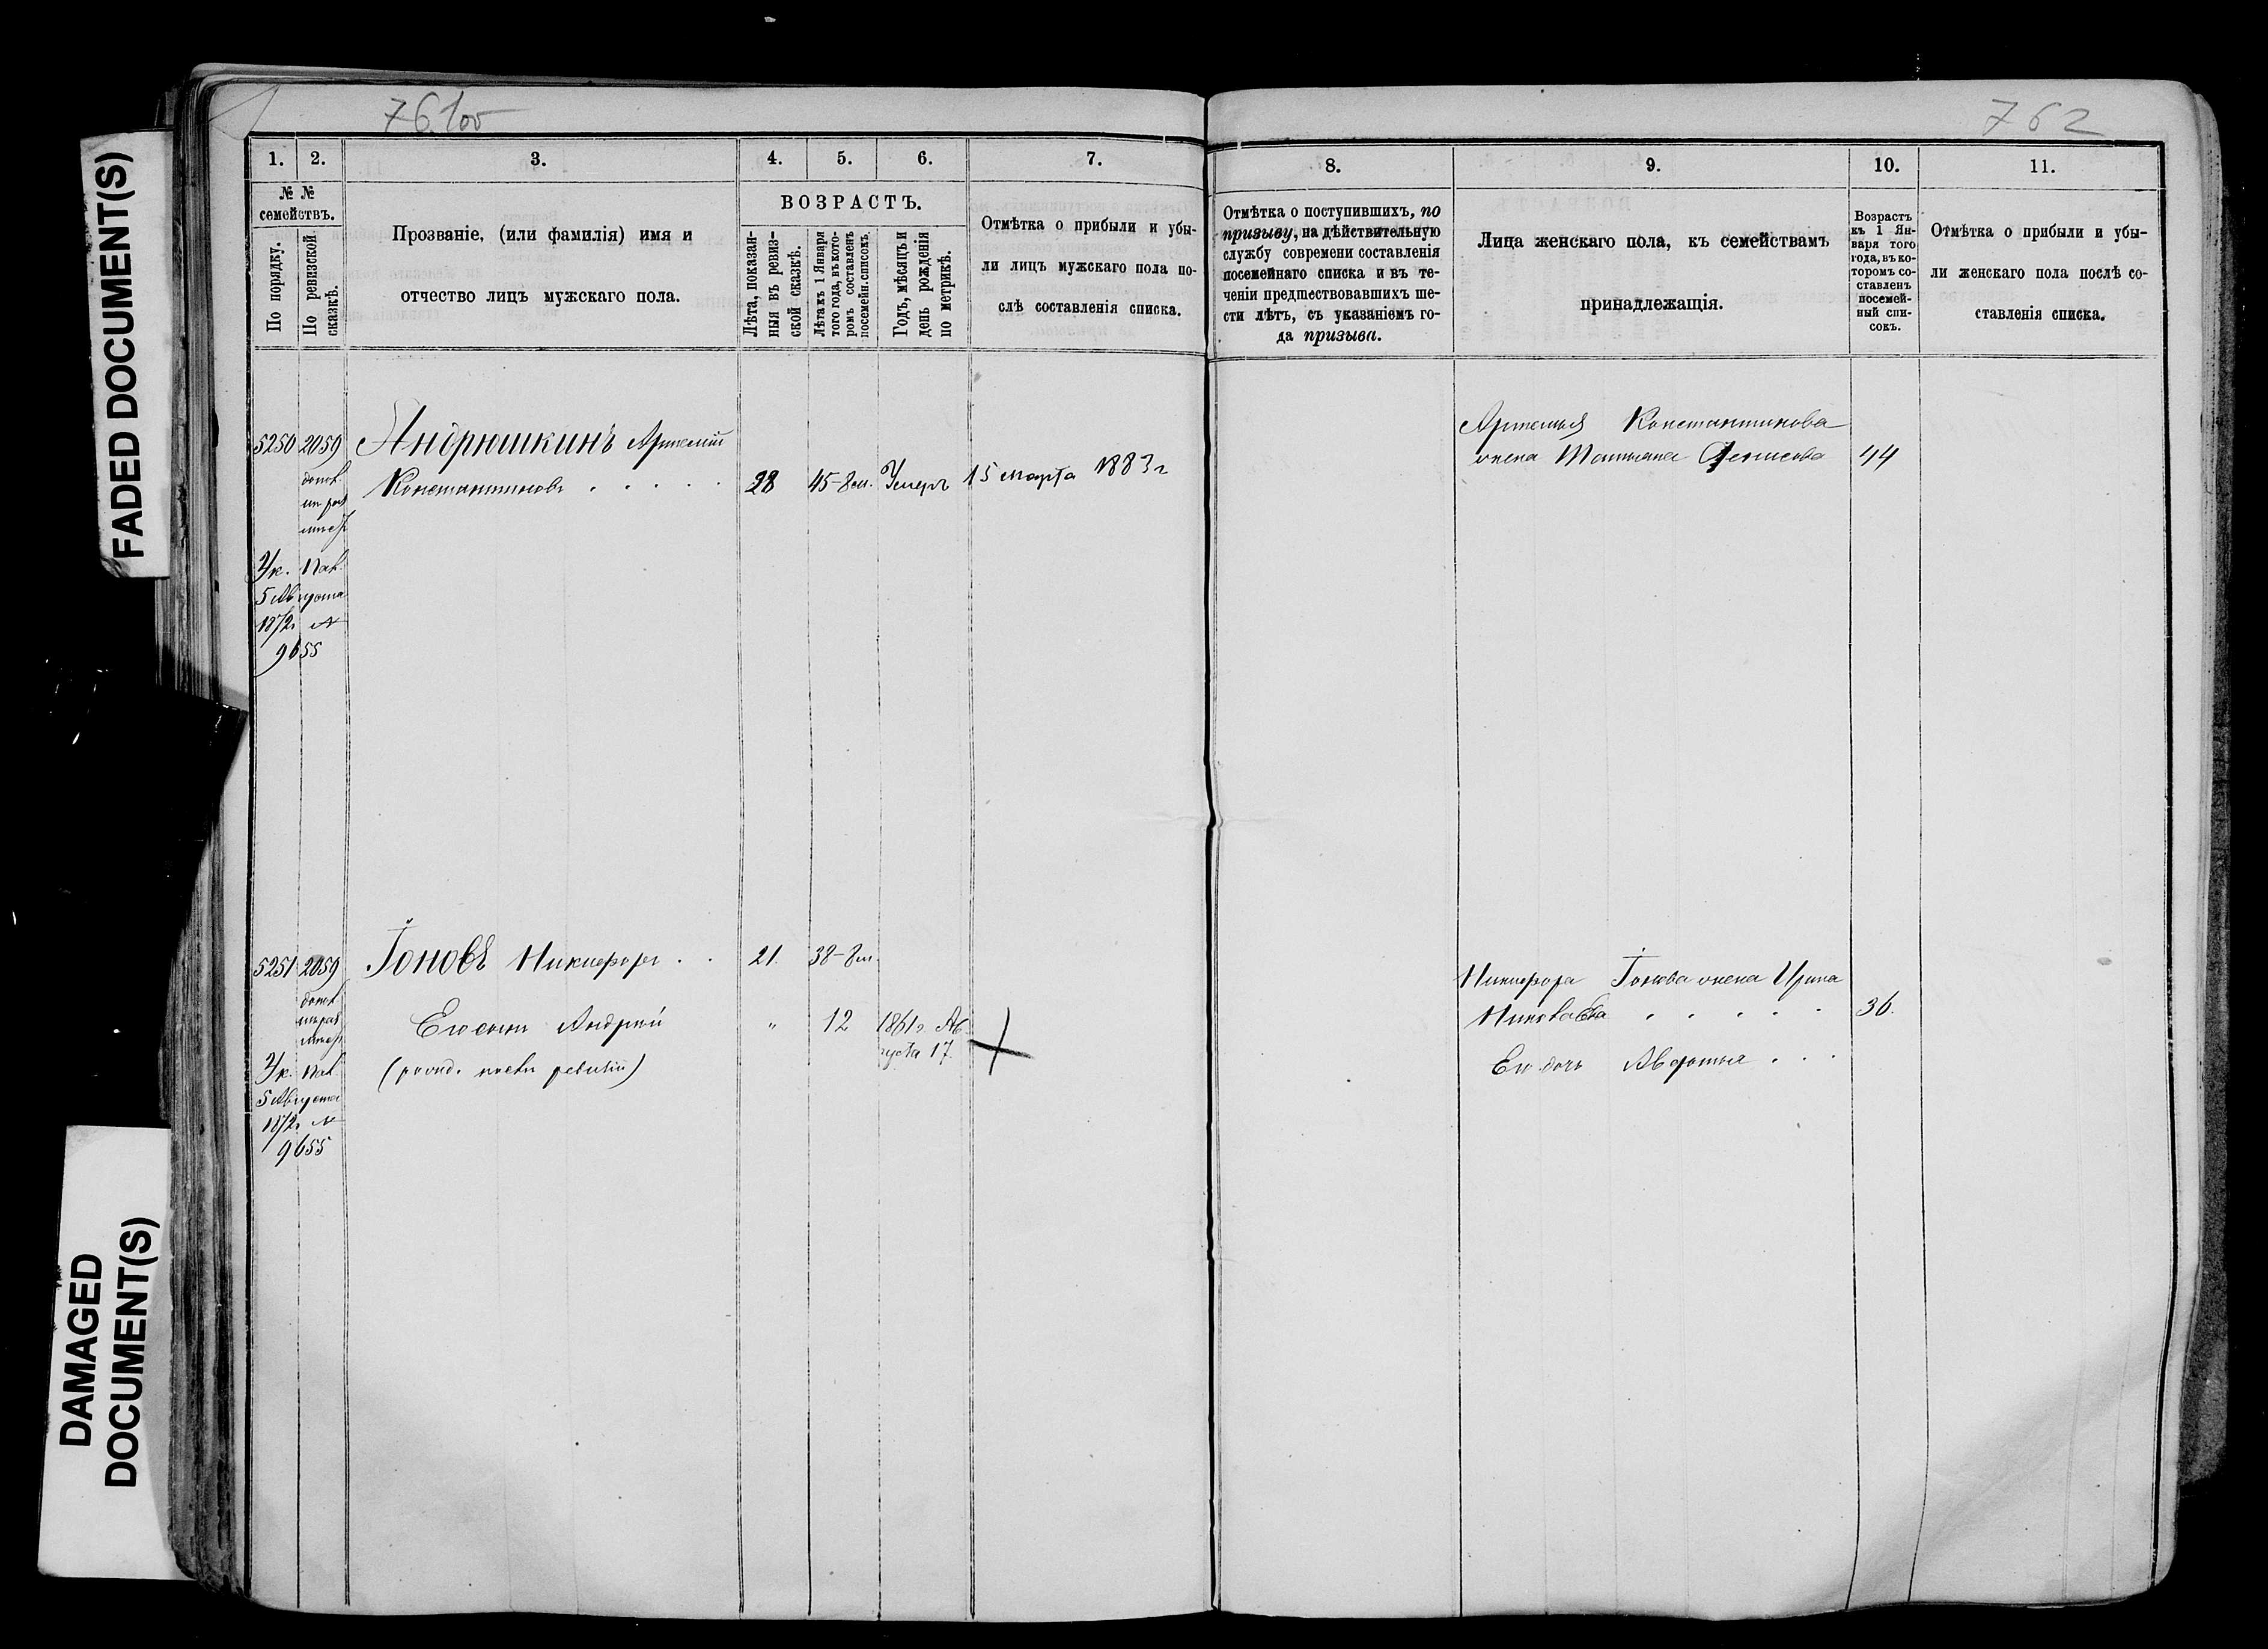 FADED DOCUMENT(S)
DAMAGED
DOCUMENT(S)
761об
1. 2. 3. 4. 5. 6. 7.
№ №
семействъ.
По порядку.
По ревизской
сказкѣ.
Прозваніе, (или фамилія) имя и
отчество лицъ мужскаго пола.
ВОЗРАСТЪ.
Лѣта, показан-
ныя въ ревиз-
ской сказкѣ.
Лѣта къ 1 Января
того года, въ кото-
ромъ составленъ
посемейн. списокъ.
Годъ, мѣсяцъ и
день рожденія
по метрикѣ.
Отмѣтка о прибыли и убы-
ли лицъ мужскаго пола по-
слѣ составленія списка.
5250 2059 Андрюшкинъ Артемій
Константиновъ . . . . . 28 45-8м. Умеръ 15 марта 1883 г
Ук. Пал.
5 Августа
1872г №
9655
5251 2059 Іоновъ Никифоръ . . 21. 38-8м.
Его сынъ Андрей " 12 1861г. Ав
густа 17.
(рожд. послѣ ревизіи)
Ук. Пал
5 Августа
1872г №
9655
762
8. 9. 10. 11.
Отмѣтка о поступившихъ, по
призыву, на дѣйствительную
службу современи составленія
посемейнаго списка и въ те-
ченіи предшествовавшихъ ше-
сти лѣтъ, съ указаніемъ го-
да призыва.
Лица женскаго пола, къ семействамъ
принадлежащія.
Возрастъ
къ 1 Ян-
варя того
года, въ ко-
торомъ со-
ставленъ
посемей-
ный спи-
сокъ.
Отмѣтка о прибыли и убы-
ли женскаго пола послѣ со-
ставленія списка.
Артемья Константинова
жена Татьяна Денисова 44
Никифора Іонова жена Ирина
Николаева . . . . . 36.
Его дочь Авдотья . . .